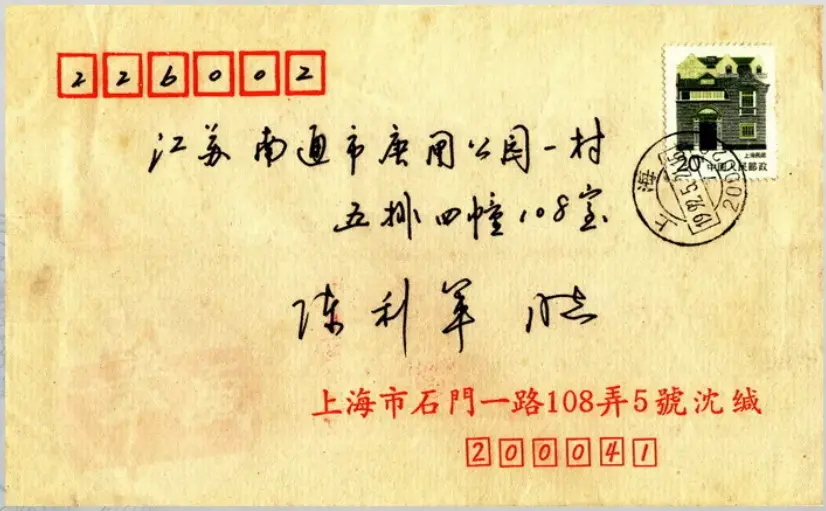 226002
江苏南通市唐闸公园一村
五排四幢108室
陈利军 启
上海民居
20 中国人民邮政
上海
1992.5.
上海市石門一路108弄5號沈缄
200041